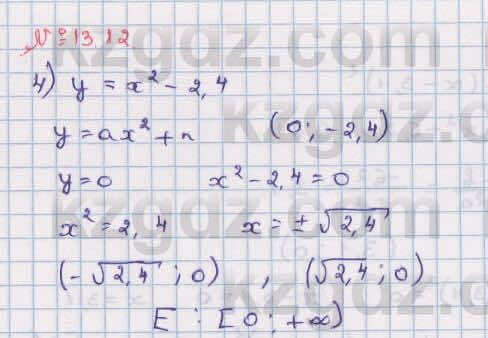 № 13.12
4) y = x² - 2,4
y = ax² + n (0; -2,4)
y = 0 x² - 2,4 = 0
x² = 2,4 x = ± √2,4
(-√2,4 ; 0) , (√2,4 ; 0)
E : [0; +∞)
kzgdz.com